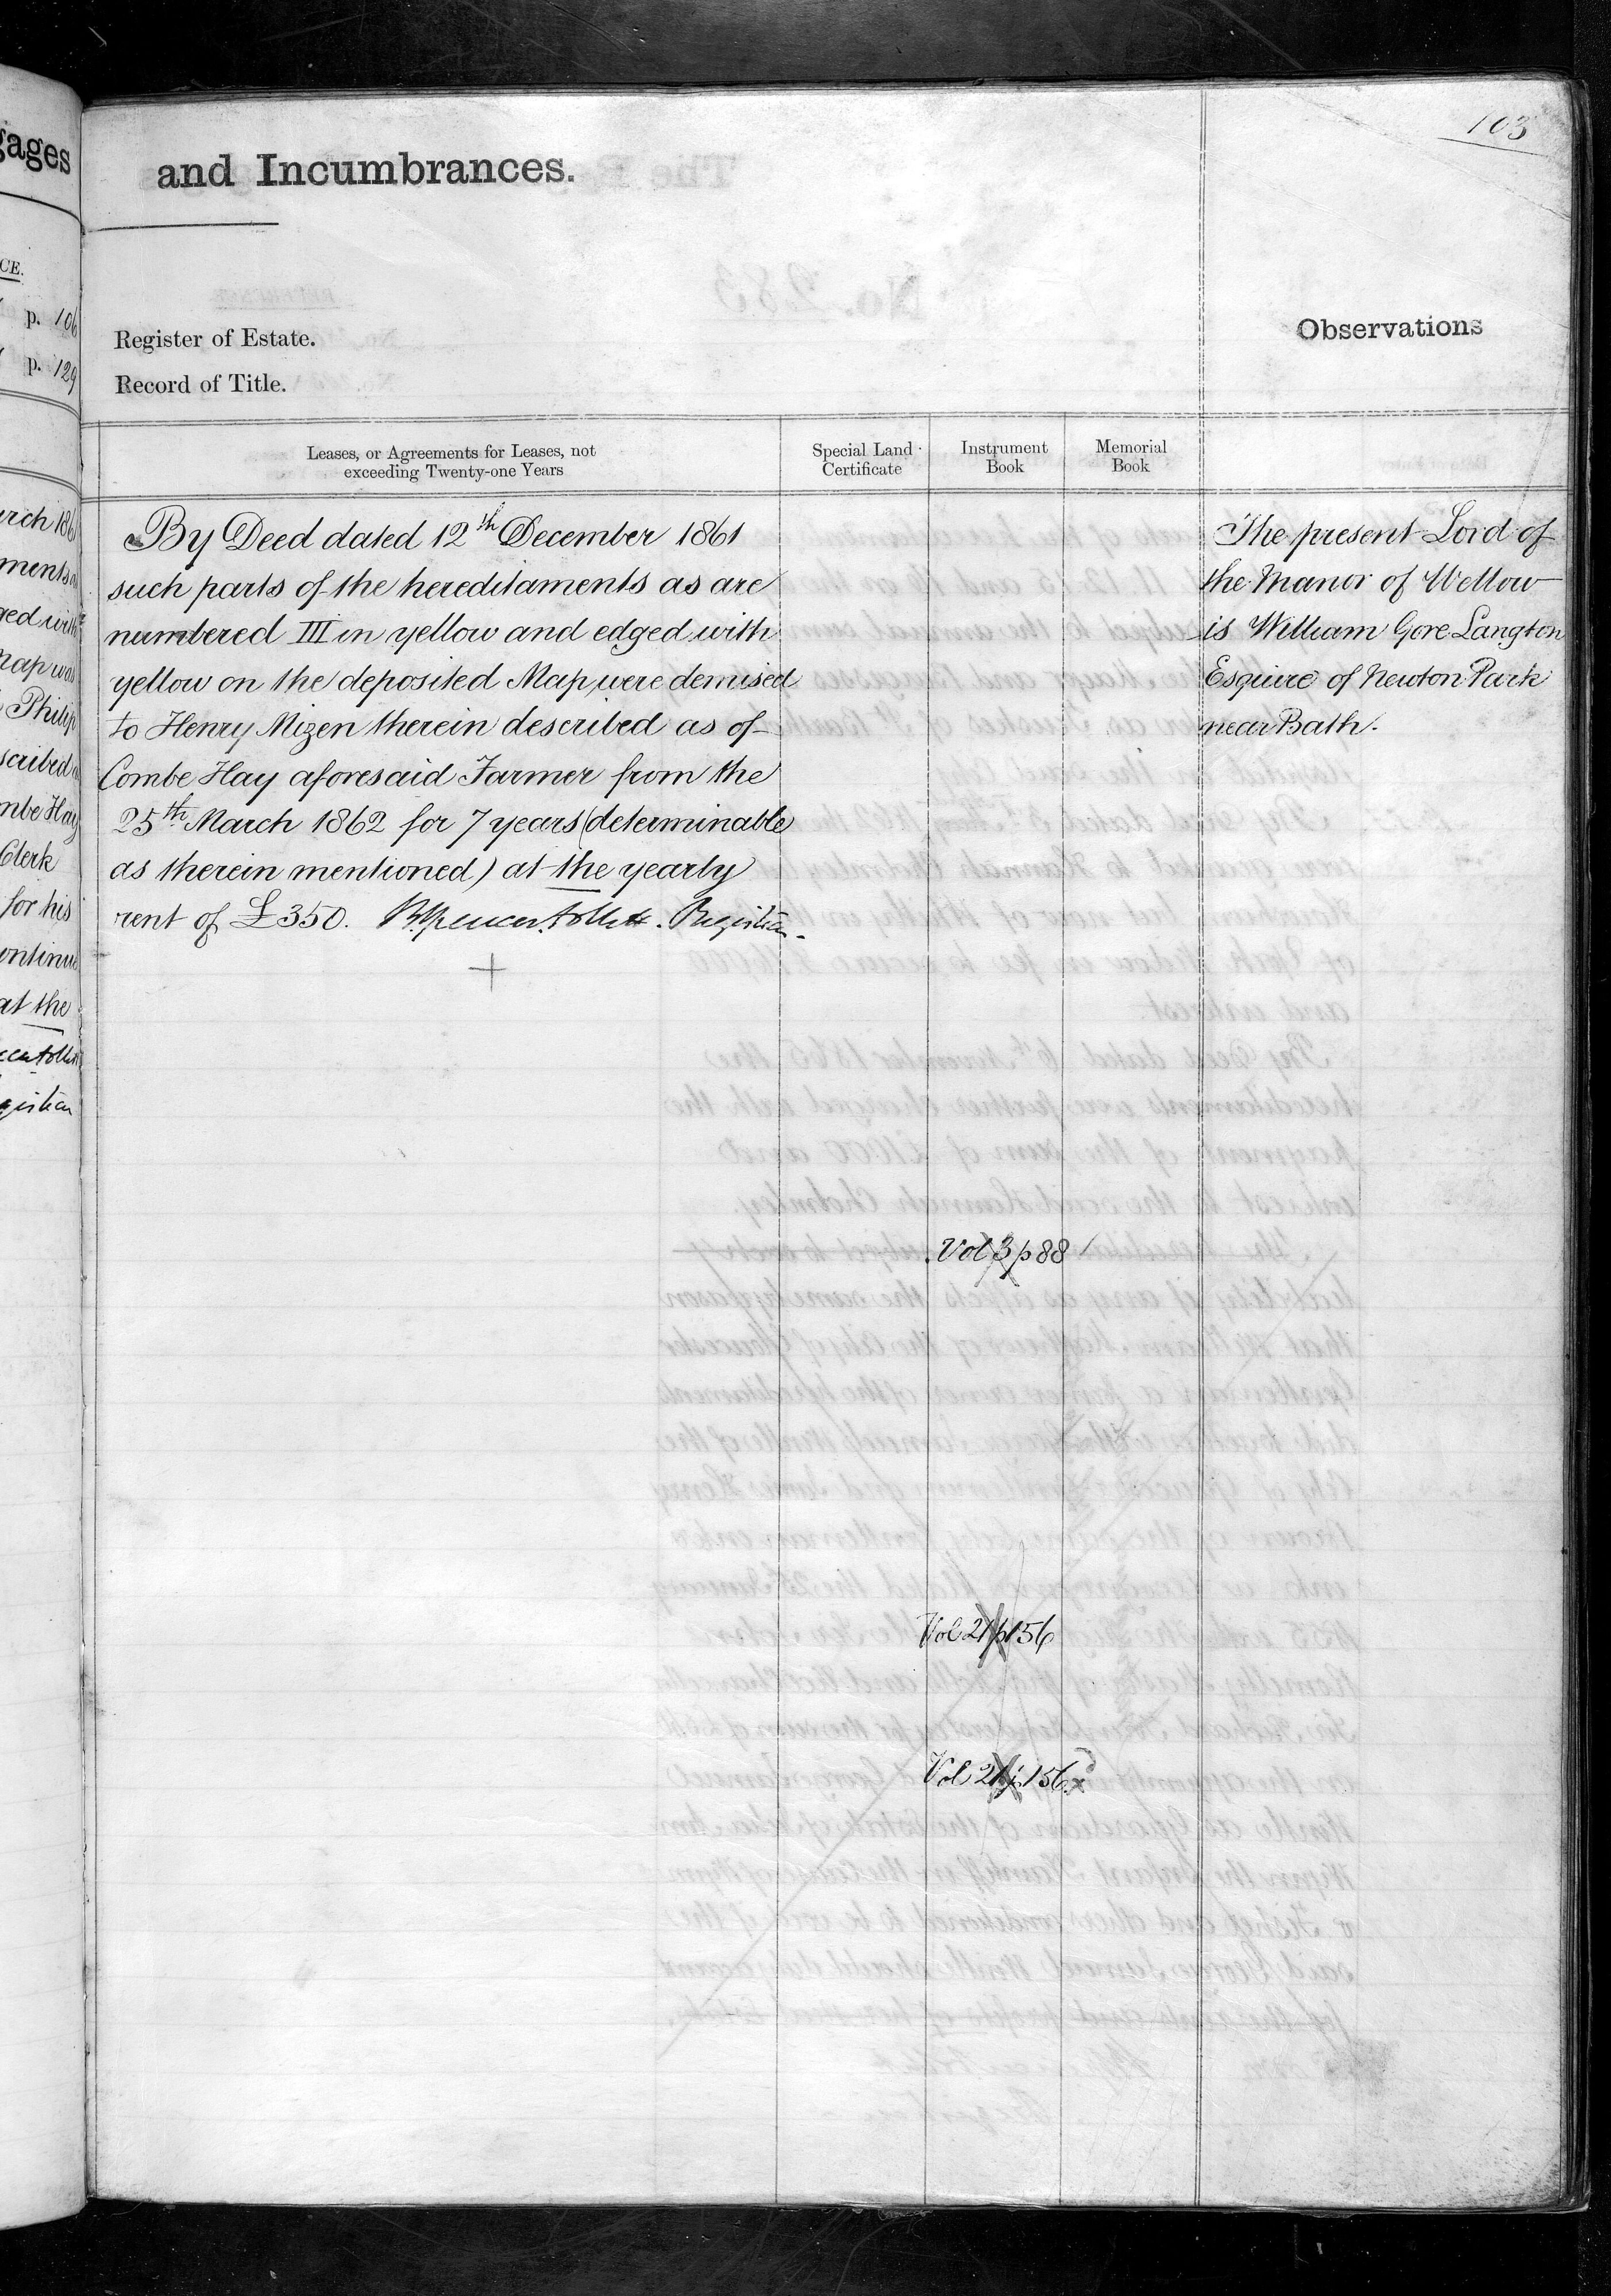 103
gages
and Incumbrances.
CE.
p. 106
p. 129
Register of Estate.
Record of Title.
Observations
Leases, or Agreements for Leases, not
exceeding Twenty-one Years
Special Land
Certificate
Instrument
Book
Memorial
Book
By Deed dated 12th December 1861
such parts of the hereditaments as are
numbered III in yellow and edged with
yellow on the deposited Map were demised
to Henry Mizen therein described as of
Combe Hay aforesaid Farmer from the
25th March 1862 for 7 years (determinable
as therein mentioned) at the yearly
rent of £350. Brent Spencer Follett. Registrar.
The present Lord of
the Manor of Wellow
is William Gore Langton
Esquire of Newton Park
near Bath.
Vol 3 p 88
Vol 21 p 156
Vol 21 p 156
Philip
Clerk
for his
at the